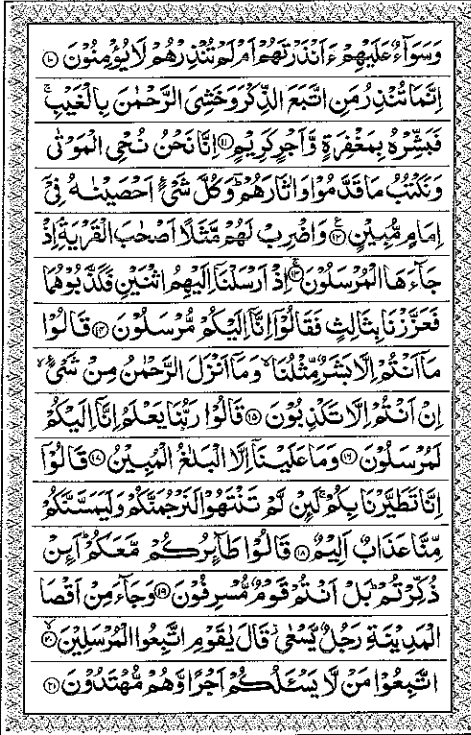 وَسَوَآءٌ عَلَيْهِمْ ءَاَنْذَرْتَهُمْ اَمْ لَمْ تُنْذِرْهُمْ لَا يُؤْمِنُوْنَ ۝۱۰
اِنَّمَا تُنْذِرُ مَنِ اتَّبَعَ الذِّكْرَ وَخَشِيَ الرَّحْمٰنَ بِالْغَيْبِ ۚ
فَبَشِّرْهُ بِمَغْفِرَةٍ وَّاَجْرٍ كَرِيْمٍ ۝۱۱ اِنَّا نَحْنُ نُحْيِ الْمَوْتٰى
وَنَكْتُبُ مَا قَدَّمُوْا وَاٰثَارَهُمْ ؕ وَكُلَّ شَيْءٍ اَحْصَيْنٰهُ فِيْٓ
اِمَامٍ مُّبِيْنٍ ۝۱۲ وَاضْرِبْ لَهُمْ مَّثَلًا اَصْحٰبَ الْقَرْيَةِ ۘ اِذْ
جَآءَهَا الْمُرْسَلُوْنَ ۝۱۳ اِذْ اَرْسَلْنَاۤ اِلَيْهِمُ اثْنَيْنِ فَكَذَّبُوْهُمَا
فَعَزَّزْنَا بِثَالِثٍ فَقَالُوْۤا اِنَّاۤ اِلَيْكُمْ مُّرْسَلُوْنَ ۝۱۴ قَالُوْا
مَاۤ اَنْتُمْ اِلَّا بَشَرٌ مِّثْلُنَا ۙ وَمَاۤ اَنْزَلَ الرَّحْمٰنُ مِنْ شَيْءٍ ۙ
اِنْ اَنْتُمْ اِلَّا تَكْذِبُوْنَ ۝۱۵ قَالُوْا رَبُّنَا يَعْلَمُ اِنَّاۤ اِلَيْكُمْ
لَمُرْسَلُوْنَ ۝۱۶ وَمَا عَلَيْنَاۤ اِلَّا الْبَلٰغُ الْمُبِيْنُ ۝۱۷ قَالُوْۤا
اِنَّا تَطَيَّرْنَا بِكُمْ ۚ لَئِنْ لَّمْ تَنْتَهُوْا لَنَرْجُمَنَّكُمْ وَلَيَمَسَّنَّكُمْ
مِّنَّا عَذَابٌ اَلِيْمٌ ۝۱۸ قَالُوْا طَآئِرُكُمْ مَّعَكُمْ ؕ اَئِنْ
ذُكِّرْتُمْ ؕ بَلْ اَنْتُمْ قَوْمٌ مُّسْرِفُوْنَ ۝۱۹ وَجَآءَ مِنْ اَقْصَا
الْمَدِيْنَةِ رَجُلٌ يَّسْعٰى ۫ قَالَ يٰقَوْمِ اتَّبِعُوا الْمُرْسَلِيْنَ ۝۲۰
اتَّبِعُوْا مَنْ لَّا يَسْئَلُكُمْ اَجْرًا وَّهُمْ مُّهْتَدُوْنَ ۝۲۱